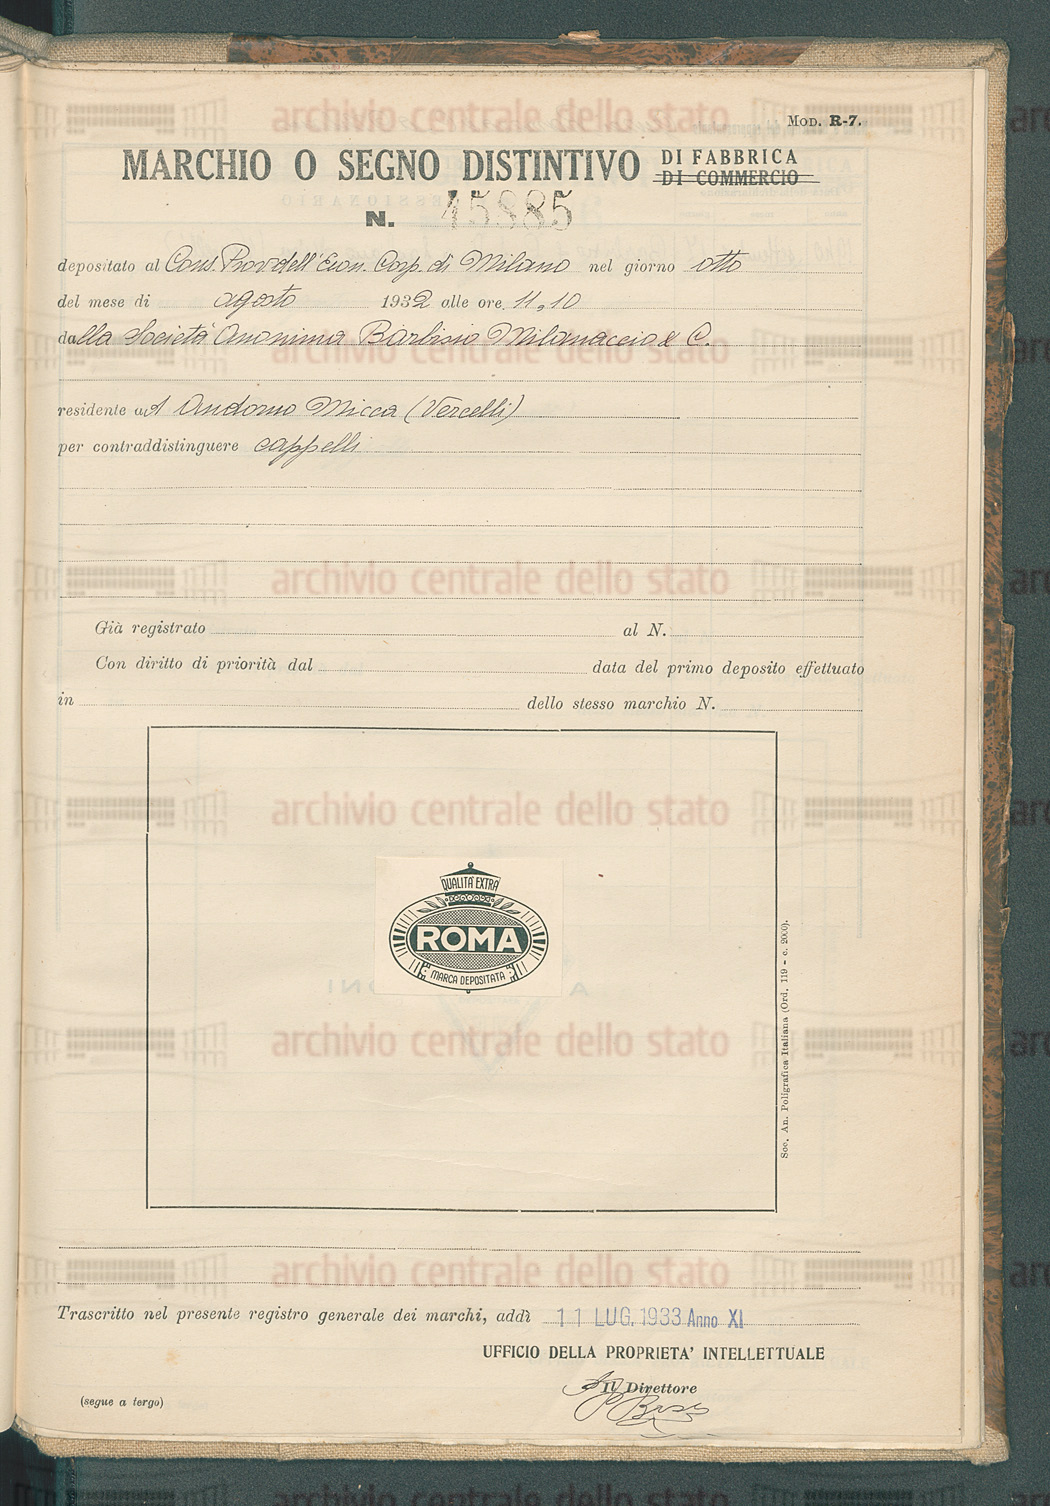 Mod. R-7.
MARCHIO O SEGNO DISTINTIVO DI FABBRICA
DI COMMERCIO
N. 45885
depositato al Cons. Prov. dell' Econ. Corp. di Milano nel giorno otto
del mese di agosto 1932 alle ore 11,10
dalla Società Anonima Barbisio Milanaccio & C.
residente ad Andorno Micca (Vercelli)
per contraddistinguere cappelli
Già registrato al N.
Con diritto di priorità dal data del primo deposito effettuato
in dello stesso marchio N.
QUALITA' EXTRA
ROMA
MARCA DEPOSITATA
Soc. An. Poligrafica Italiana (Ord. 119 - c. 2000).
Trascritto nel presente registro generale dei marchi, addì 11 LUG. 1933 Anno XI
UFFICIO DELLA PROPRIETA' INTELLETTUALE
Il Direttore
(segue a tergo)
archivio centrale dello stato
archivio centrale dello stato
archivio centrale dello stato
archivio centrale dello stato
archivio centrale dello stato
archivio centrale dello stato
archivio centrale dello stato